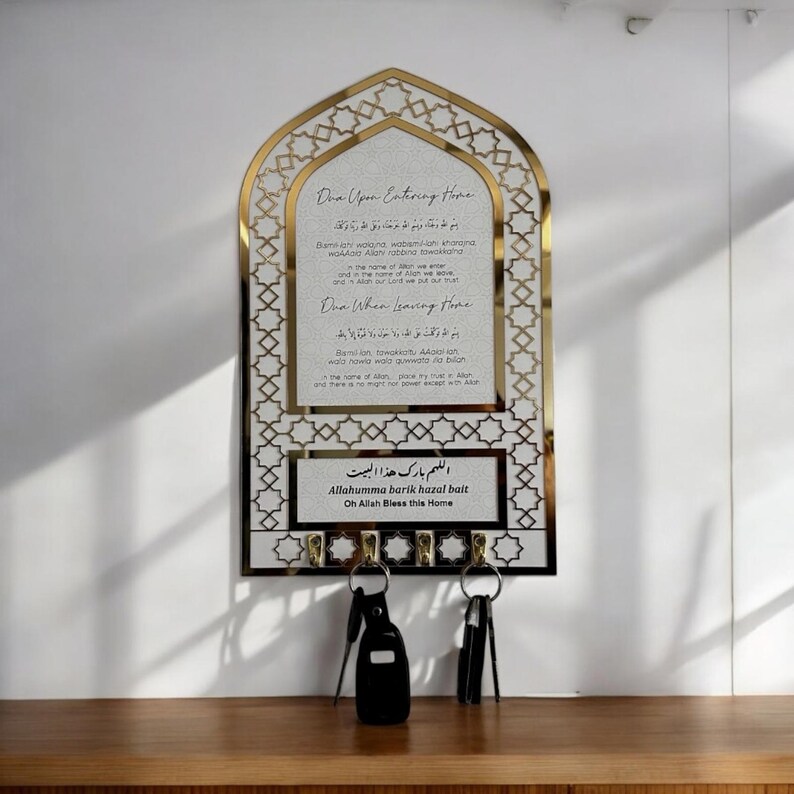 Dua Upon Entering Home
بِسْمِ اللَّهِ وَلَجْنَا، وَبِسْمِ اللَّهِ خَرَجْنَا، وَعَلَى اللَّهِ رَبِّنَا تَوَكَّلْنَا
Bismil-lahi walajna, wabismil-lahi kharajna,
waAAala Allahi rabbina tawakkalna
In the name of Allah we enter
and in the name of Allah we leave,
and in Allah our Lord we put our trust.
Dua When Leaving Home
بِسْمِ اللَّهِ تَوَكَّلْتُ عَلَى اللَّهِ، وَلَا حَوْلَ وَلَا قُوَّةَ إِلَّا بِاللَّهِ.
Bismil-lah, tawakkaltu AAalal-lah,
wala hawla wala quwwata illa billah
In the name of Allah, I place my trust in Allah,
and there is no might nor power except with Allah
اللهم بارك هذا البيت
Allahumma barik hazal bait
Oh Allah Bless this Home